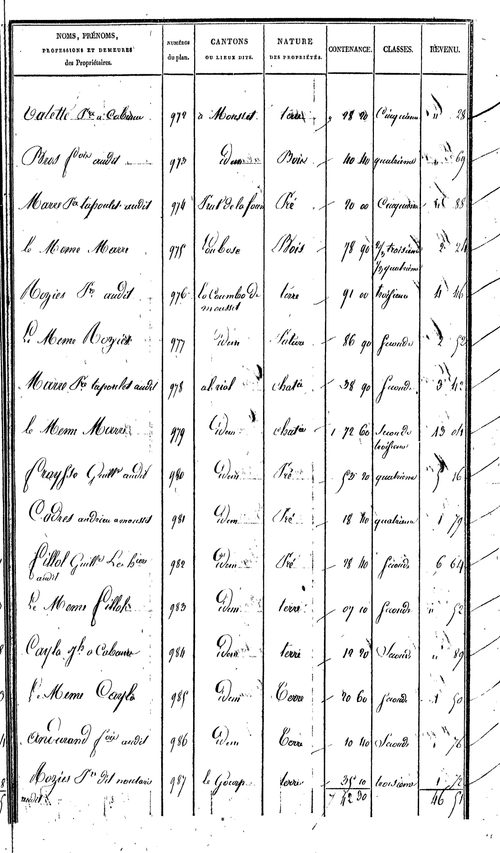 NOMS, PRÉNOMS, PROFESSIONS ET DEMEURES des Propriétaires. NUMÉROS du plan. CANTONS OU LIEUX DITS. NATURE DES PROPRIÉTÉS. CONTENANCE. CLASSES. REVENU.
Valette Pre a Cabanes 972 a Mousset terre 28 20 Cinquième " 28
Bros fois audit 973 idem Bois 40 40 quatrième 69
Marre Pre lapoulet audit 974 Prat de la fon Pré 20 00 Cinquième 88
le Meme Marre 975 Bois 78 90 troisième 2 24
quatrième
Rozies Pre audit 976 la Coumbo de terre 91 00 troisieme 4 46
mousset
Le Meme Rozies 977 idem 86 90 Seconde 2 52
Marre Pre lapoulet audit 978 al rial chatie 38 90 Seconde 3 42
le Meme Marre 979 idem chatie 1 72 60 Seconde 13 04
troisieme
Guille audit 980 idem Pré 53 20 quatrième 5 16
Codres andrieu a mousset 981 idem Pré 18 40 quatrieme 1 79
fillol Guille 982 idem Pré 28 40 Seconde 6 64
audit
Le Meme fillol 983 idem terre 07 10 Seconde " 52
Cayla jh a Cabanes 984 idem terre 12 20 Seconde " 89
le Meme Cayla 985 idem Terre 20 60 Seconde 1 50
fois audit 986 idem Terre 10 40 Seconde 76
Rozies Pre dit 987 le terre 35 10 troisieme 1 72
audit 7 42 30 46 51